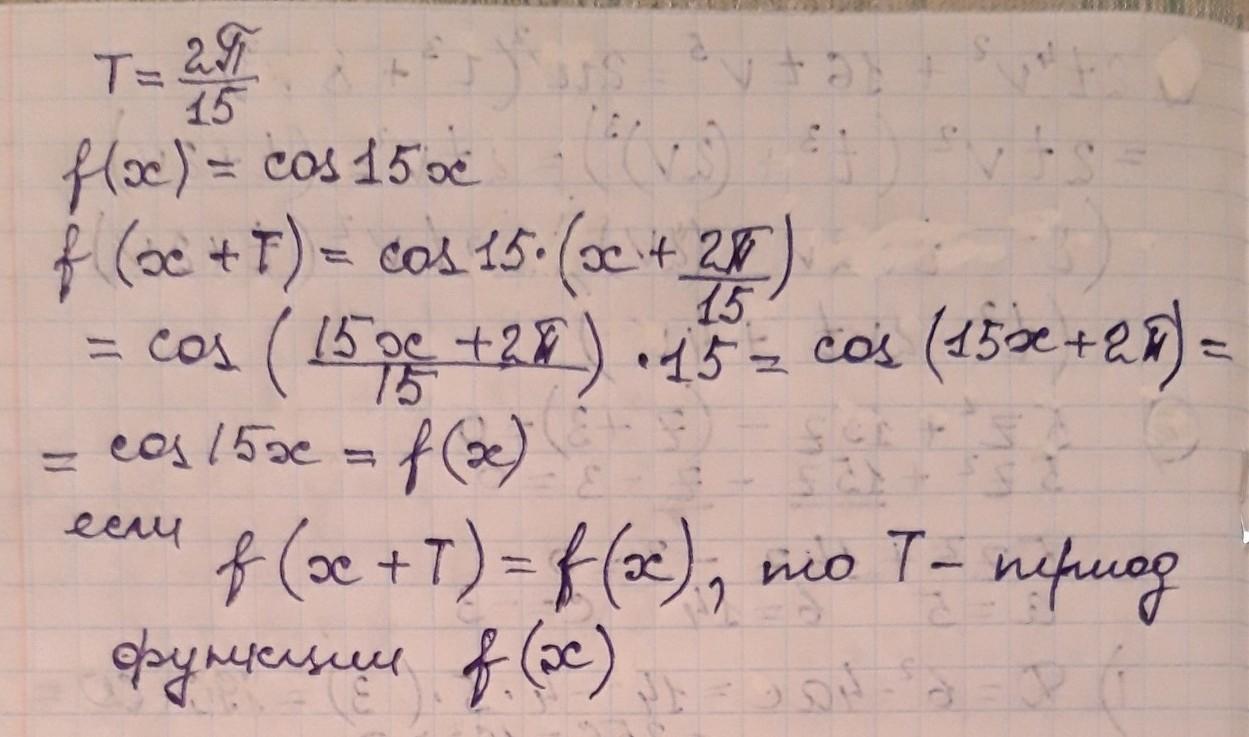 T = 2π/15
f(x) = cos 15x
f (x + T) = cos 15·(x + 2π/15)
= cos ( 15x + 2π / 15 ) · 15 = cos (15x + 2π) =
= cos 15x = f(x)
если f(x + T) = f(x), то T – период
функции f(x)